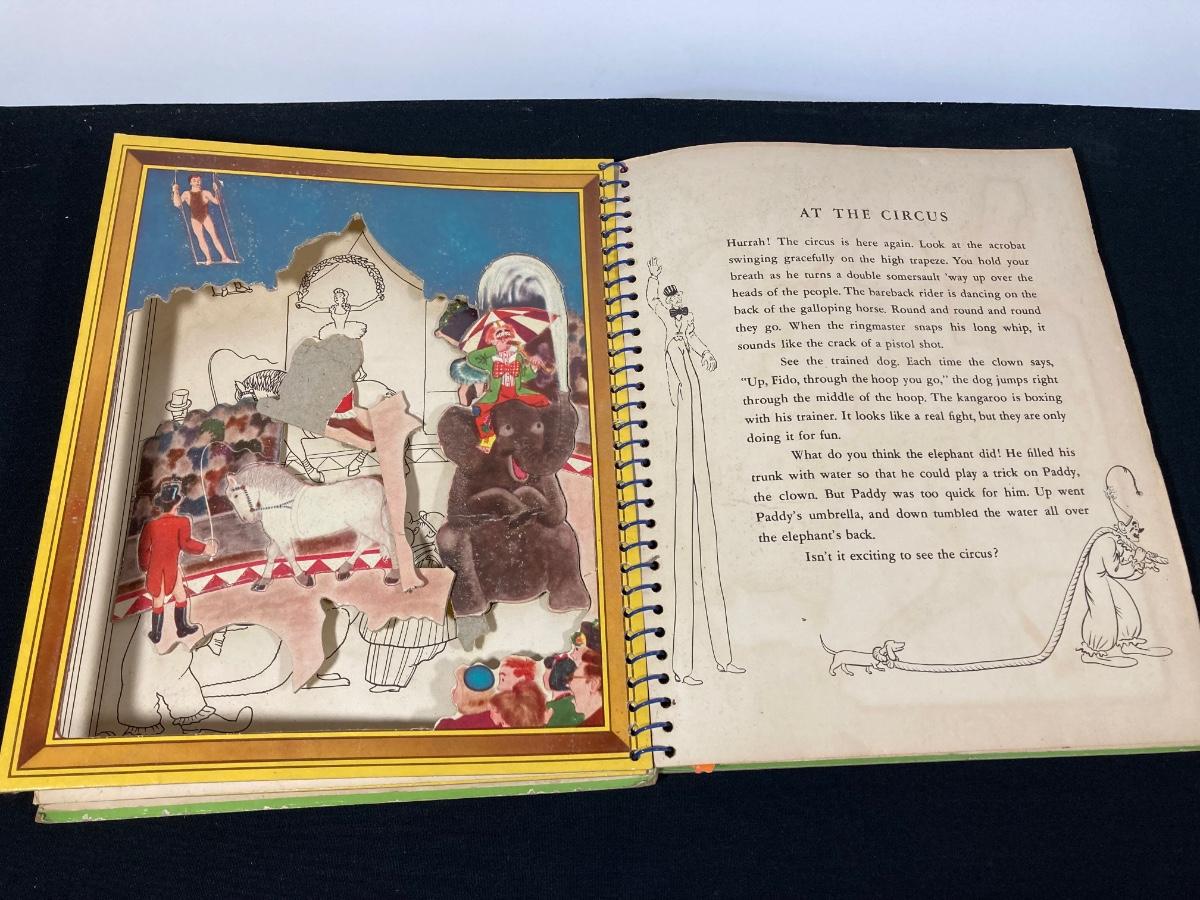 AT THE CIRCUS
Hurrah! The circus is here again. Look at the acrobat
swinging gracefully on the high trapeze. You hold your
breath as he turns a double somersault 'way up over the
heads of the people. The bareback rider is dancing on the
back of the galloping horse. Round and round and round
they go. When the ringmaster snaps his long whip, it
sounds like the crack of a pistol shot.
See the trained dog. Each time the clown says,
"Up, Fido, through the hoop you go," the dog jumps right
through the middle of the hoop. The kangaroo is boxing
with his trainer. It looks like a real fight, but they are only
doing it for fun.
What do you think the elephant did! He filled his
trunk with water so that he could play a trick on Paddy,
the clown. But Paddy was too quick for him. Up went
Paddy's umbrella, and down tumbled the water all over
the elephant's back.
Isn't it exciting to see the circus?